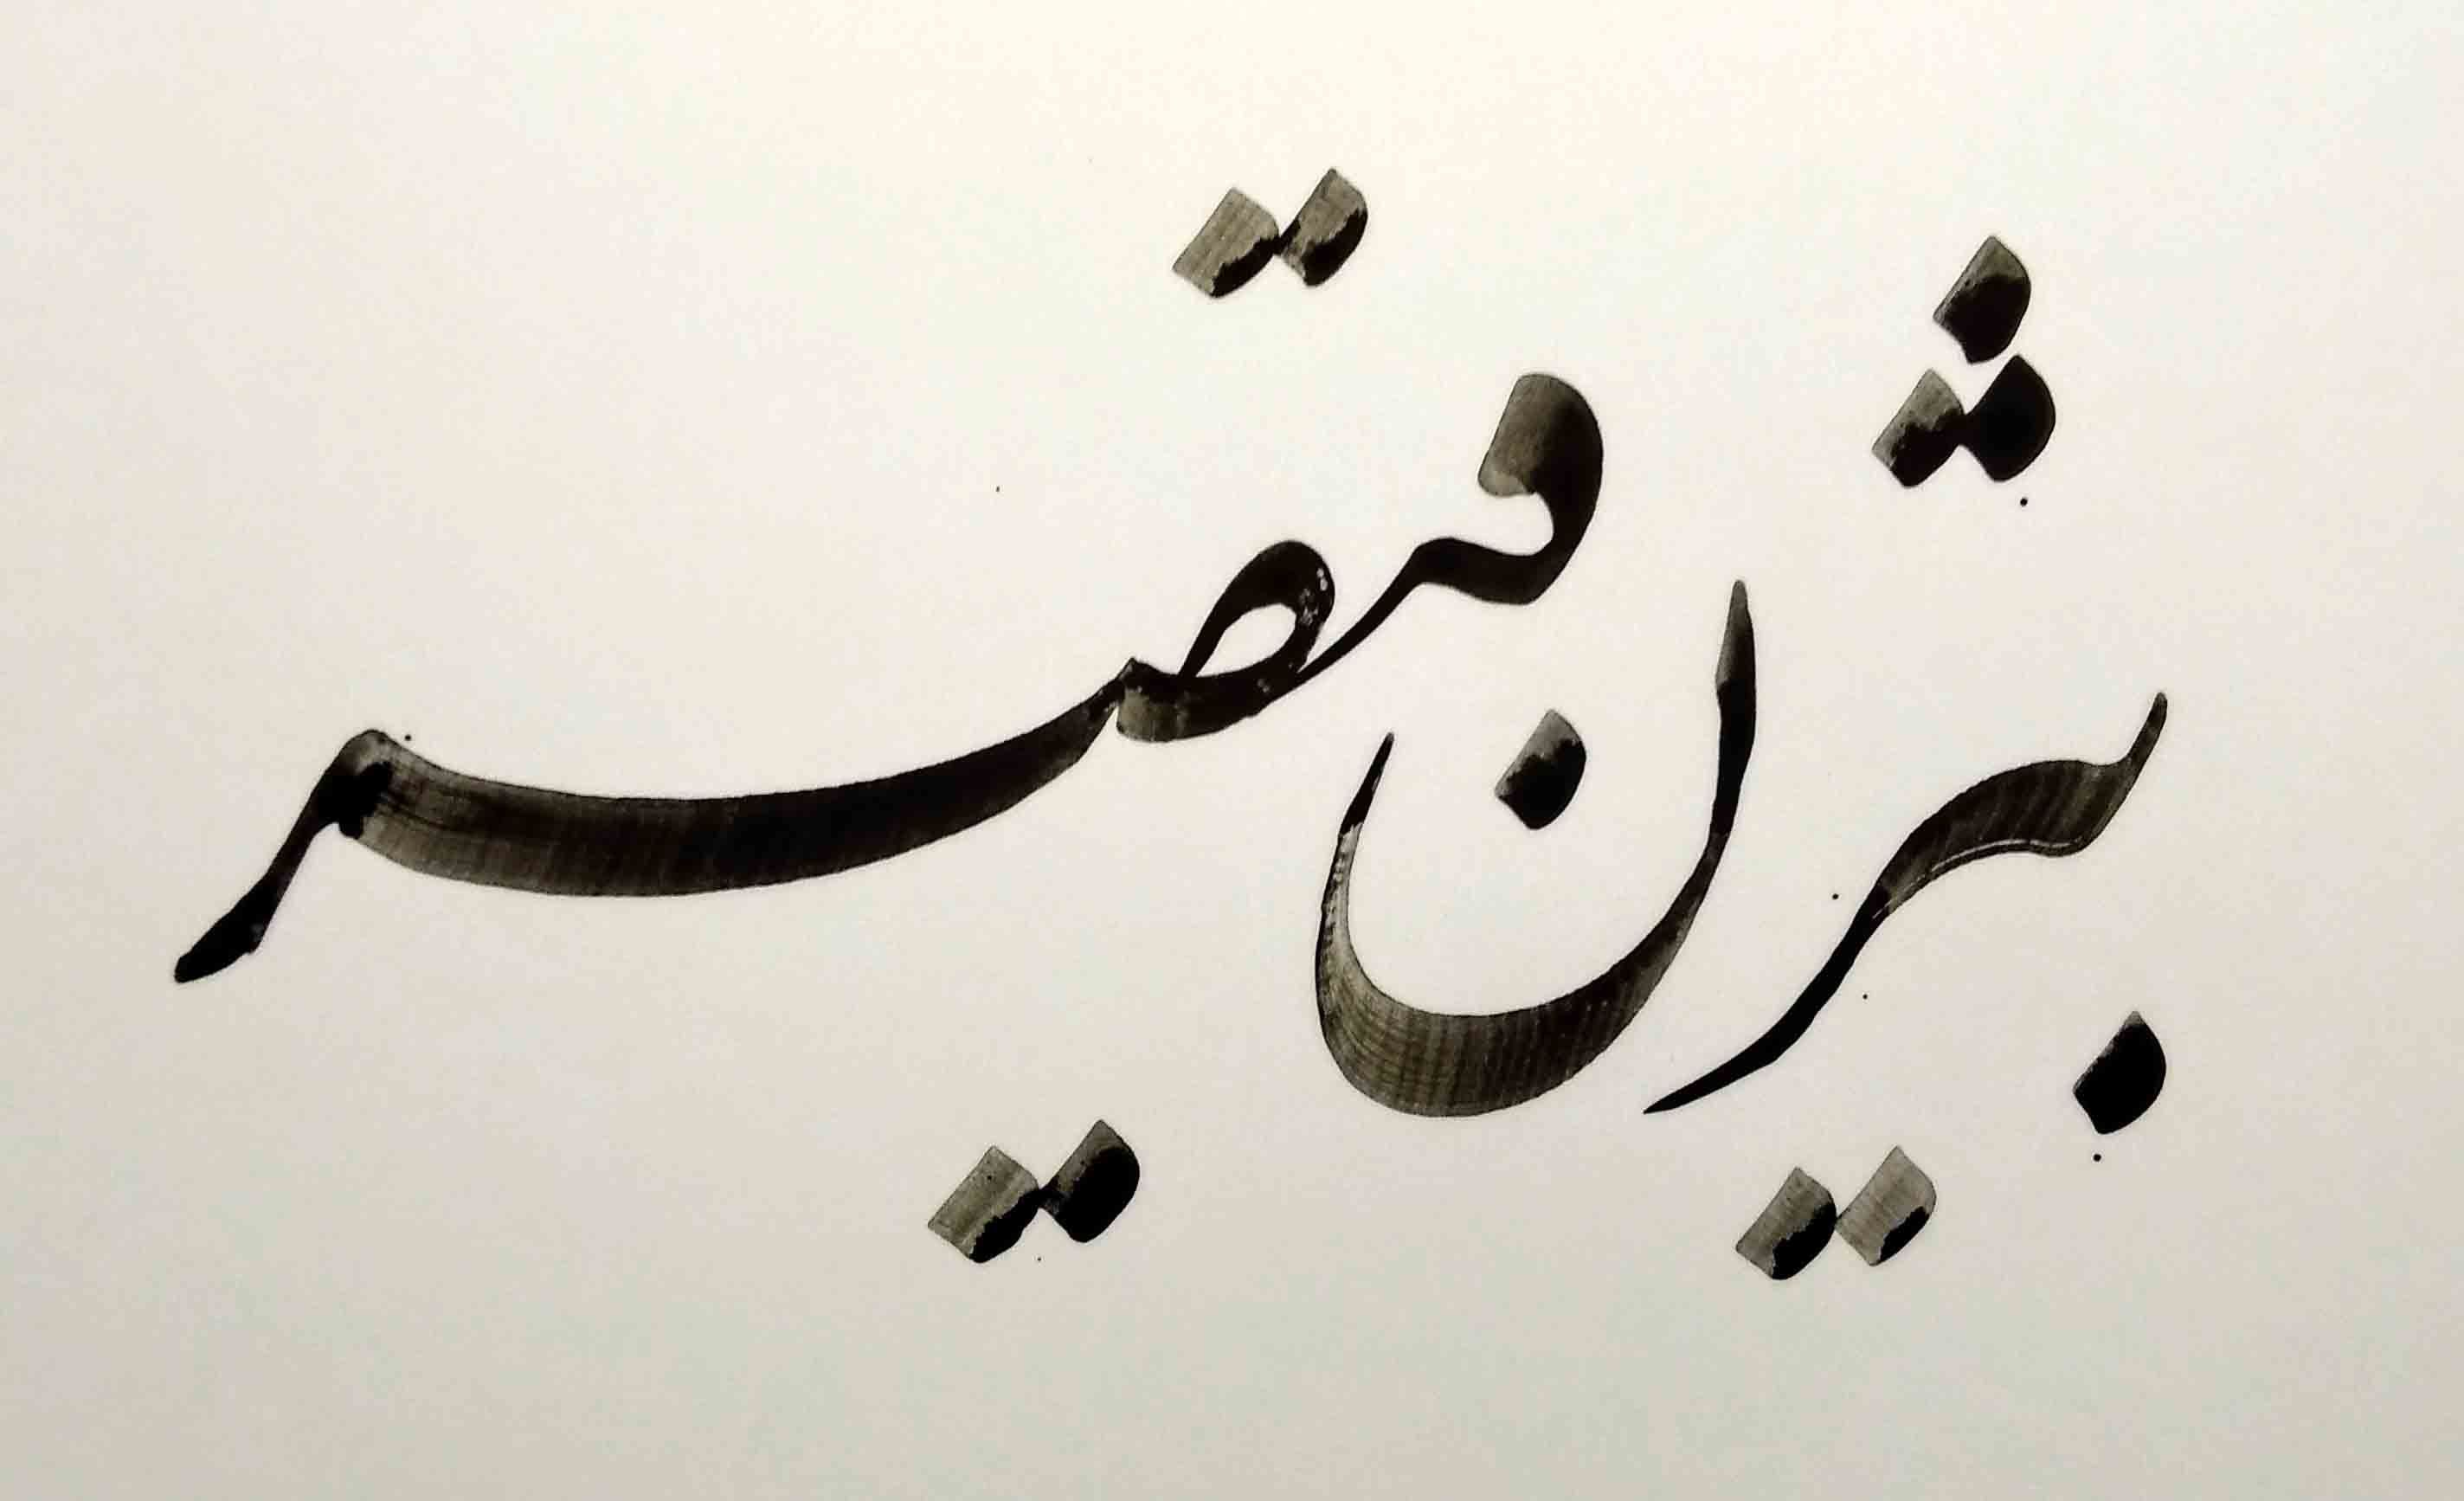 بیژن قیصر